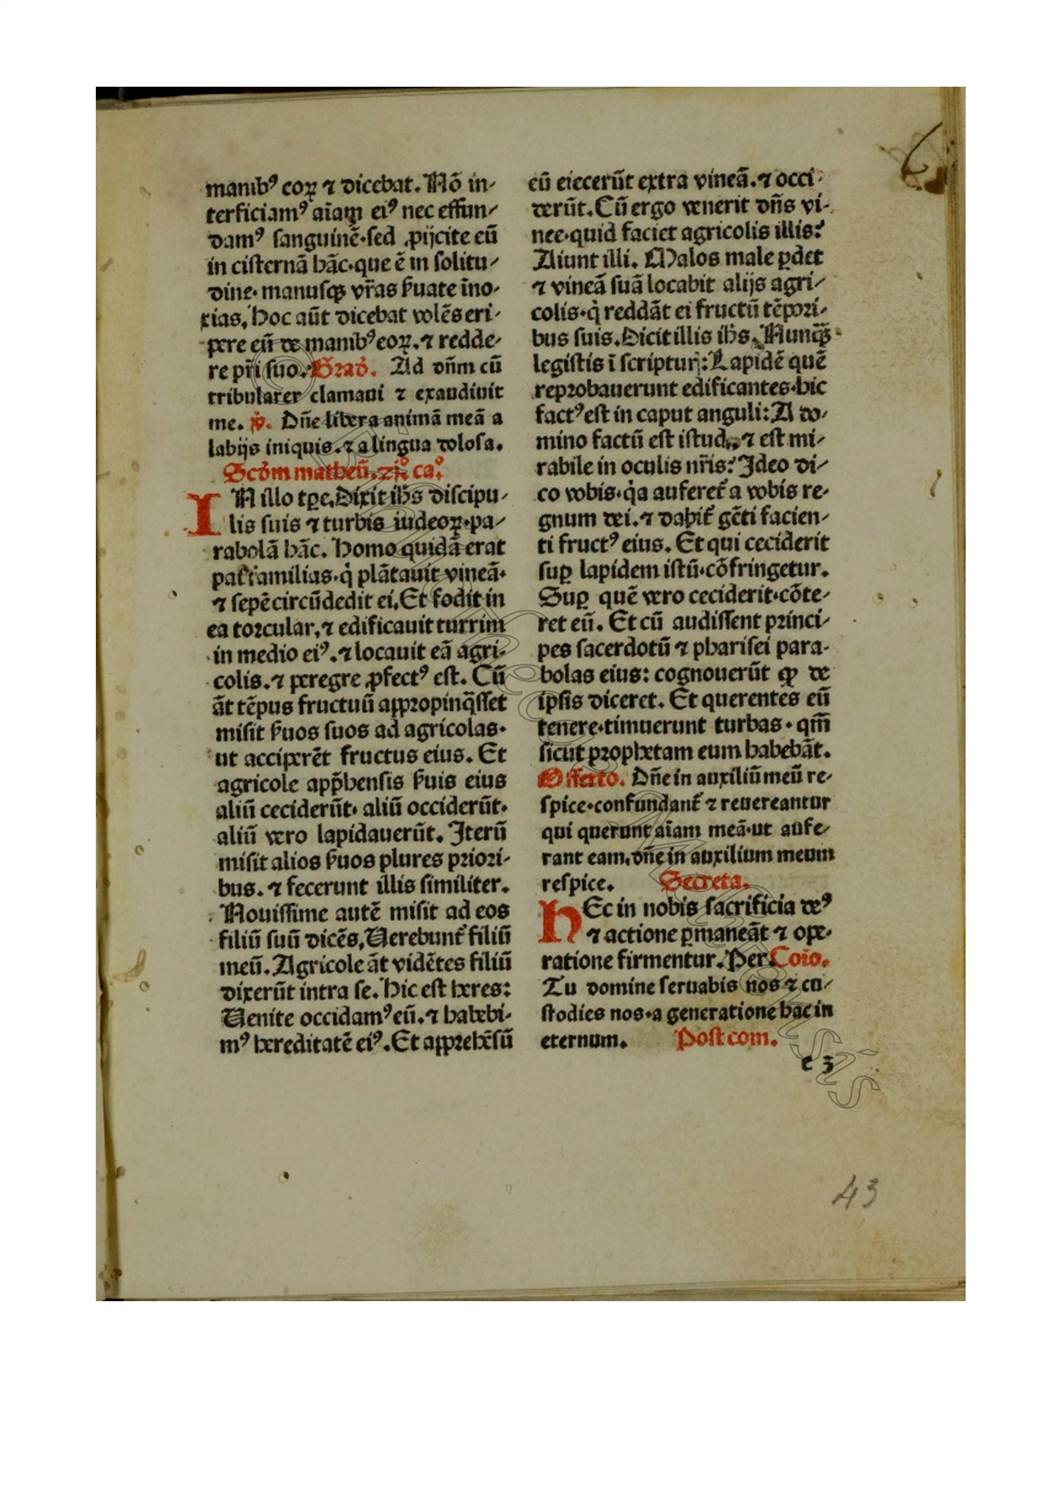 manibꝰ eoꝝ ⁊ dicebat. Nō in-
terficiamꝰ aīam eiꝰ nec effun-
damꝰ sanguinē·sed ꝓijcite eū
in cisternā hāc·que ē in solitu-
dine· manusqꝫ vr̄as ẜuate īno-
xias, Hoc aūt dicebat volēs eri-
pere eū de manibꝰ eoꝝ. ⁊ redde-
re pr̄i suo. Grad̄. Ad dn̄m cū
tribularer clamaui ⁊ exaudiuit
me. v̄. Dn̄e libera animā meā a
labijs iniquis. ⁊ a lingua dolosa.
Scd̄m matheū. ca°
IN illo tp̄e. Dixit ih̄s discipu-
lis suis ⁊ turbis iudeoꝝ·pa-
rabolā hāc. Homo quidā erat
pat̄familias·q̇ plātauit vineā·
⁊ sepē circūdedit ei. Et fodit in
ea torcular, ⁊ edificauit turrim
in medio eiꝰ. ⁊ locauit eā agri-
colis. ⁊ peregre ꝓfectꝰ est. Cū
āt tēpus fructuū appropinq̄sset
misit ẜuos suos ad agricolas·
ut acciperēt fructus eius. Et
agricole app̄hensis ẜuis eius
aliū ceciderūt· aliū occiderūt·
aliū vero lapidauerūt. Iterū
misit alios ẜuos plures priori-
bus. ⁊ fecerunt illis similiter.
Nouissime autē misit ad eos
filiū suū dicēs, Uerebunt̄ filiū
meū. Agricole āt vidētes filiū
dixerūt intra se. Hic est heres:
Uenite occidamꝰ eū. ⁊ habebi-
mꝰ hereditatē eiꝰ. Et apprehēsū
eū eiecerūt extra vineā. ⁊ occi-
derūt. Cū ergo venerit dn̄s vi-
nee·quid faciet agricolis illis?
Aiunt illi. Malos male ꝑdet
⁊ vineā suā locabit alijs agri-
colis·q̇ reddāt ei fructū tēpori-
bus suis. Dicit illis ih̄s. Nunqꝫ
legistis ī scripturj: Lapidē quē
reprobauerunt edificantes·hic
factꝰ est in caput anguli: A do-
mino factū est istud, ⁊ est mi-
rabile in oculis nr̄is? Ideo di-
co vobis·q̇a auferet̄ a vobis re-
gnum dei. ⁊ dabit̄ gēti facien-
ti fructꝰ eius. Et qui ceciderit
suꝑ lapidem istū·cōfringetur.
Suꝑ quē vero ceciderit·cōte-
ret eū. Et cū audissent princi-
pes sacerdotū ⁊ pharisei para-
bolas eius: cognouerūt qꝫ de
ipsis diceret. Et querentes eū
tenere·timuerunt turbas·qm̄
sicut prophetam eum habebāt.
Offerto. Dn̄e in auxiliū meū re-
spice·confundant̄ ⁊ reuereantur
qui querunt aīam meā·ut aufe-
rant eam. dn̄e in auxilium meum
respice. Secreta.
HEc in nobis sacrificia deꝰ
⁊ actione ꝑmaneāt ⁊ ope-
ratione firmentur. Per. Coīo.
Tu domine seruabis nos ⁊ cu-
stodies nos·a generatione hac in
eternum. Postcom.
e 3
43